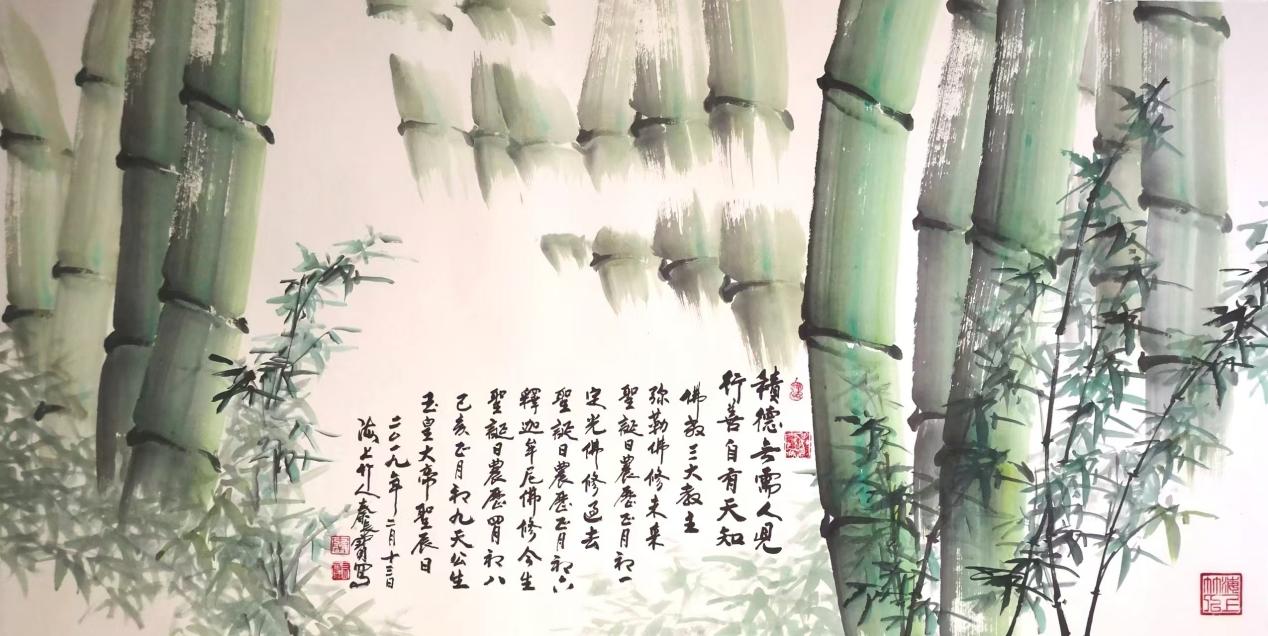 積德無需人見
行善自有天知
佛教三大教主
弥勒佛修未来
聖誕日農歷正月初一
定光佛修過去
聖誕日農歷正月初六
釋迦牟尼佛修今生
聖誕日農歷四月初八
己亥正月初九天公生
玉皇大帝聖辰日
二〇一九年二月十三日
海上竹人秦長寶寫